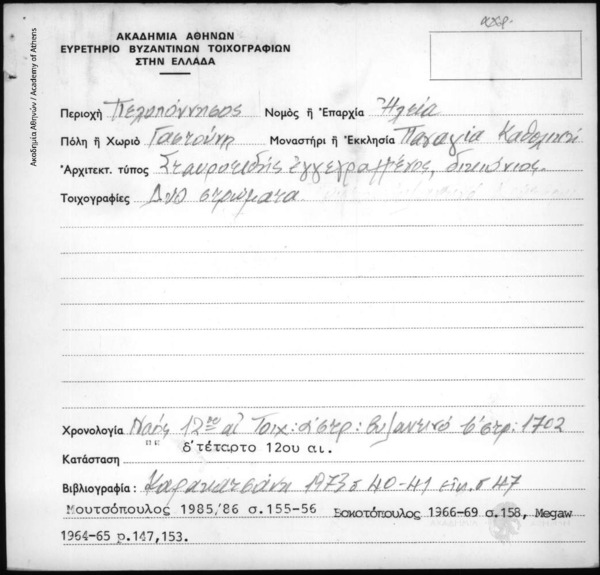 ΑΚΑΔΗΜΙΑ ΑΘΗΝΩΝ
ΕΥΡΕΤΗΡΙΟ ΒΥΖΑΝΤΙΝΩΝ ΤΟΙΧΟΓΡΑΦΙΩΝ
ΣΤΗΝ ΕΛΛΑΔΑ
Ακαδημία Αθηνών / Academy of Athens
Περιοχή Πελοπόννησος Νομός ἤ Ἐπαρχία Ἠλεία
Πόλη ἤ Χωριό Γαστούνη Μοναστήρι ἤ Ἐκκλησία Παναγία Καθολική
Ἀρχιτεκτ. τύπος Σταυροειδής ἐγγεγραμμένος, δικιόνιος.
Τοιχογραφίες Δυο στρώματα
Χρονολογία Ναός 12ου αἰ Τοιχ: α' στρ: Βυζαντινό β' στρ: 1702
"" δ'τέταρτο 12ου αι.
Κατάσταση
Βιβλιογραφία: Καρακατσάνη 1973 σ 40-41 εἰκ. σ 47
Μουτσόπουλος 1985,'86 σ.155-56 Βοκοτόπουλος 1966-69 σ.158, Megaw
1964-65 p.147,153.